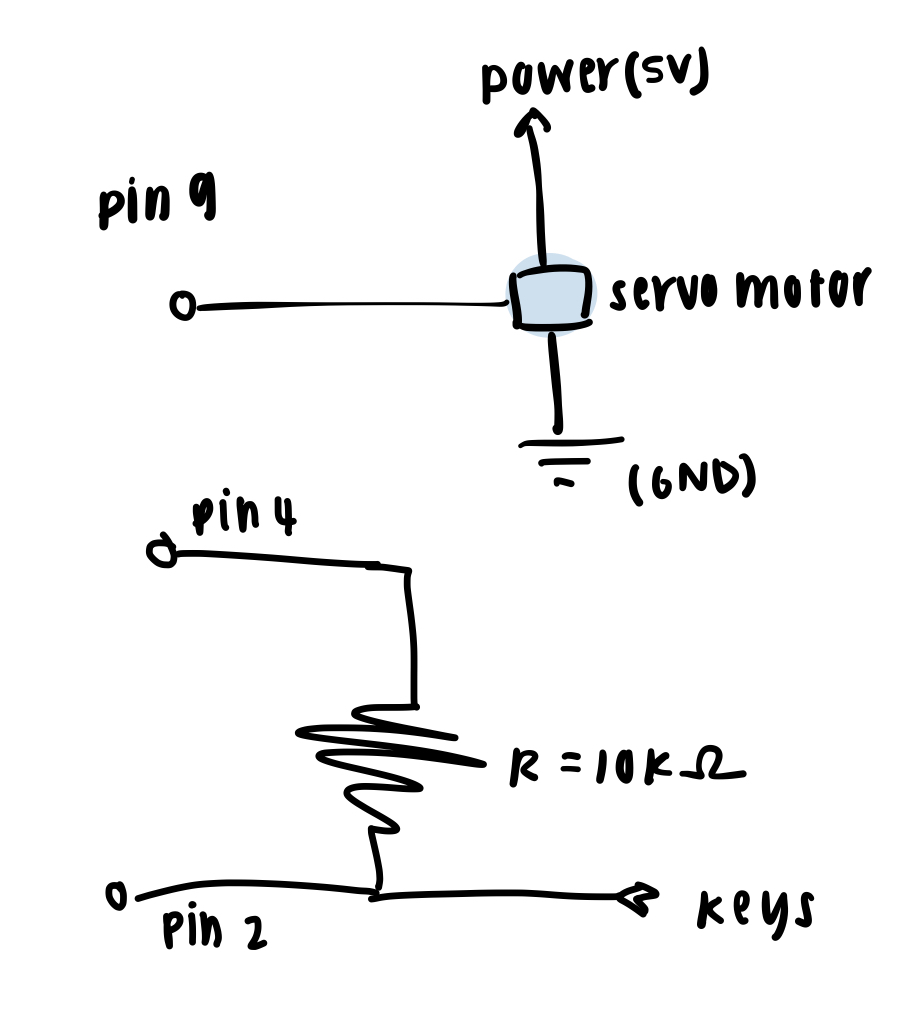 power(5V)
pin 9
servo motor
(GND)
pin 4
R = 10K Ω
pin 2
keys